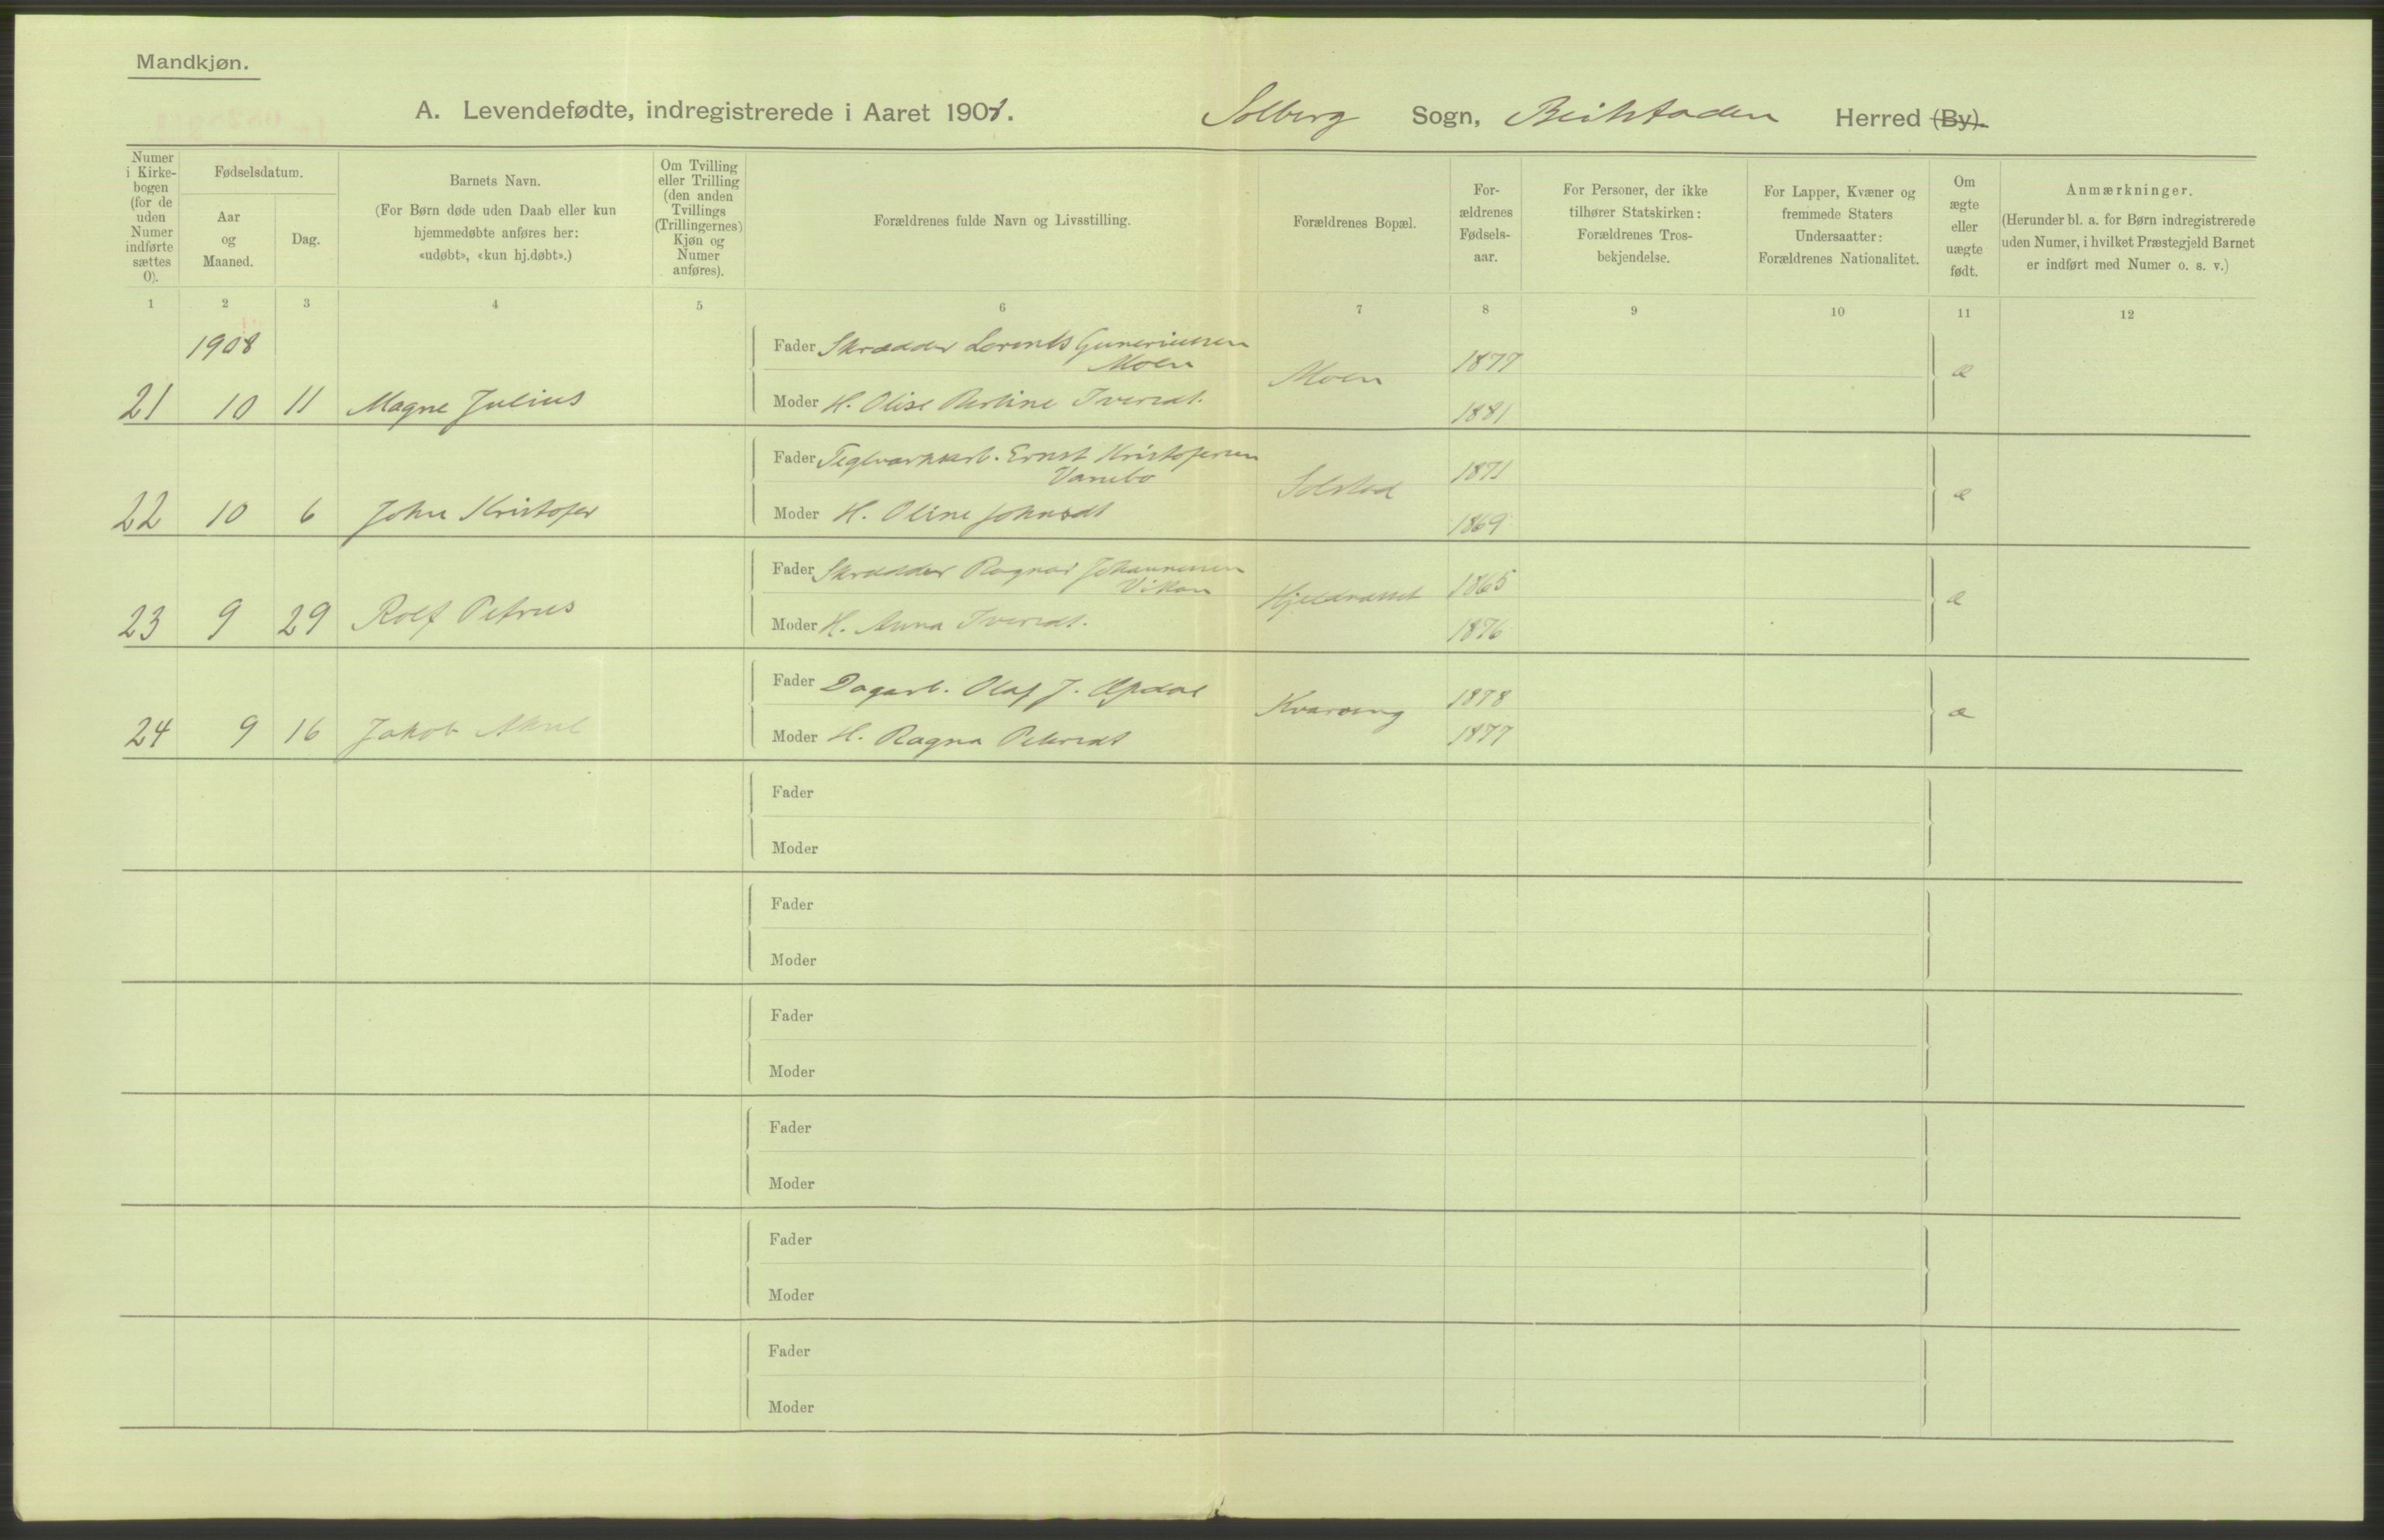 Mandkjøn.
A. Levendefødte, indregistrerede i Aaret 1908.
Solberg Sogn, Beitstaden Herred (By).
Numer i Kirkebogen (for de uden Numer indførte sættes 0).
Fødselsdatum.
Aar og Maaned.
Dag.
Barnets Navn.
(For Børn døde uden Daab eller kun
hjemmedøbte anføres her:
«udøbt», «kun hj.døbt».)
Om Tvilling
eller Trilling
(den anden
Tvillings
(Trillingernes)
Kjøn og
Numer
anføres).
Forældrenes fulde Navn og Livsstilling.
Forældrenes Bopæl.
For-
ældrenes
Fødsels-
aar.
For Personer, der ikke
tilhører Statskirken:
Forældrenes Tros-
bekjendelse.
For Lapper, Kvæner og
fremmede Staters
Undersaatter:
Forældrenes Nationalitet.
Om
ægte
eller
uægte
født.
Anmærkninger.
(Herunder bl. a. for Børn indregistrerede
uden Numer, i hvilket Præstegjeld Barnet
er indført med Numer o. s. v.)
1 2 3 4 5 6 7 8 9 10 11 12
1908
Fader Skrædder Lorents Guneriussen
Moen
Moen 1877
21 10 11 Magne Julius
Moder H. Olise Iversdt. 1881
æ
Fader Teglværksarb. Ernst Kristofersen
Vanebo
Solstad 1871
22 10 6 John Kristofer
Moder H. Oline Johnsdt 1869
æ
Fader Skrædder Ragnar Johannessen
Vikan
1865
23 9 29 Rolf Petrus
Moder H. Anna Iversdt. 1876
æ
Fader Dagarb. Olaf J. 1878
24 9 16 Jakob
Moder H. Ragna Petersdt 1877
æ
Fader
Moder
Fader
Moder
Fader
Moder
Fader
Moder
Fader
Moder
Fader
Moder